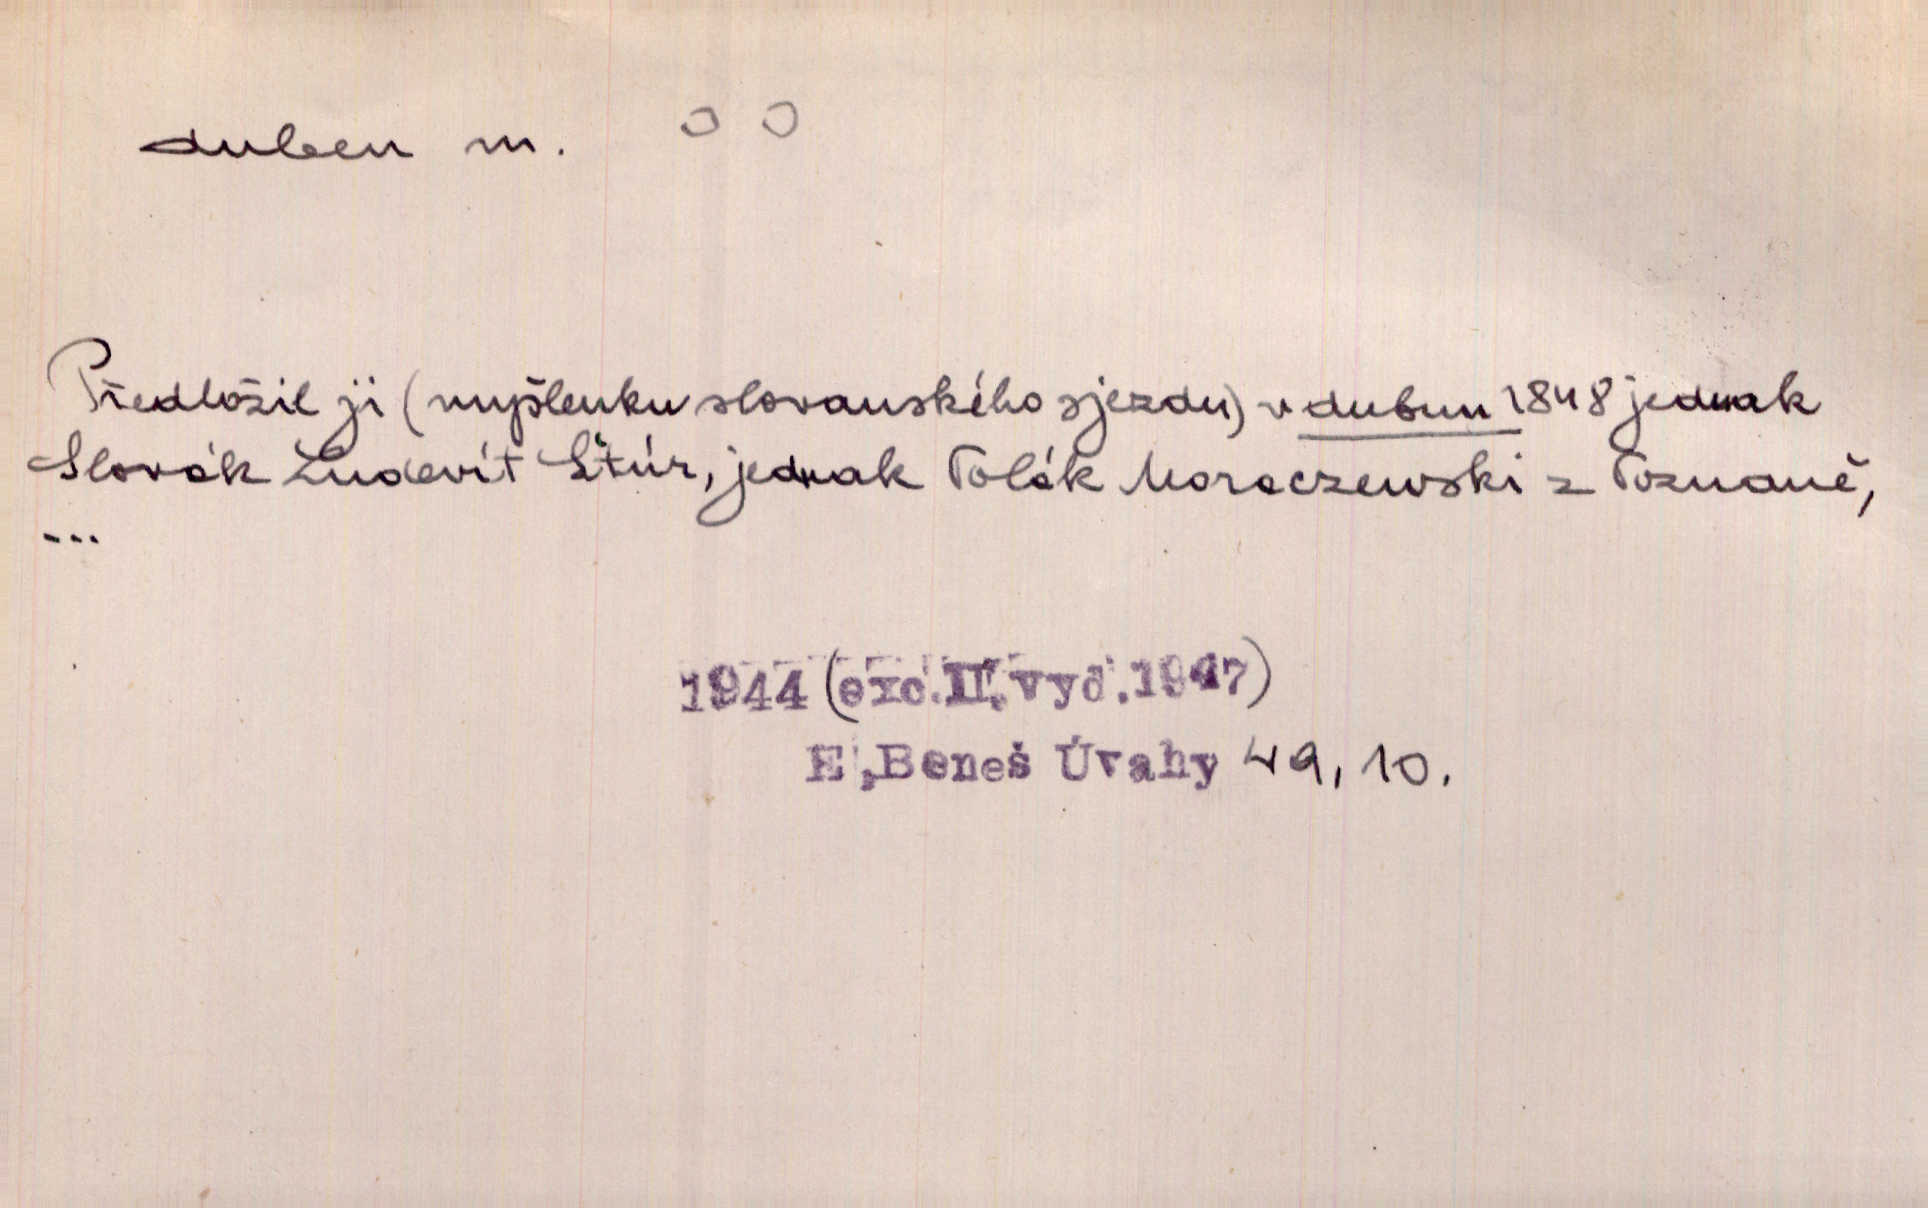 duben m. 0 0
Předložil ji (myšlenku slovanského sjezdu) v dubnu 1848 jednak
Slovák Ľudevít Štúr, jednak Polák Moraczewski z Poznaně,
...
1944 (exc. II. vyd. 1947)
E. Beneš Úvahy 49, 10.